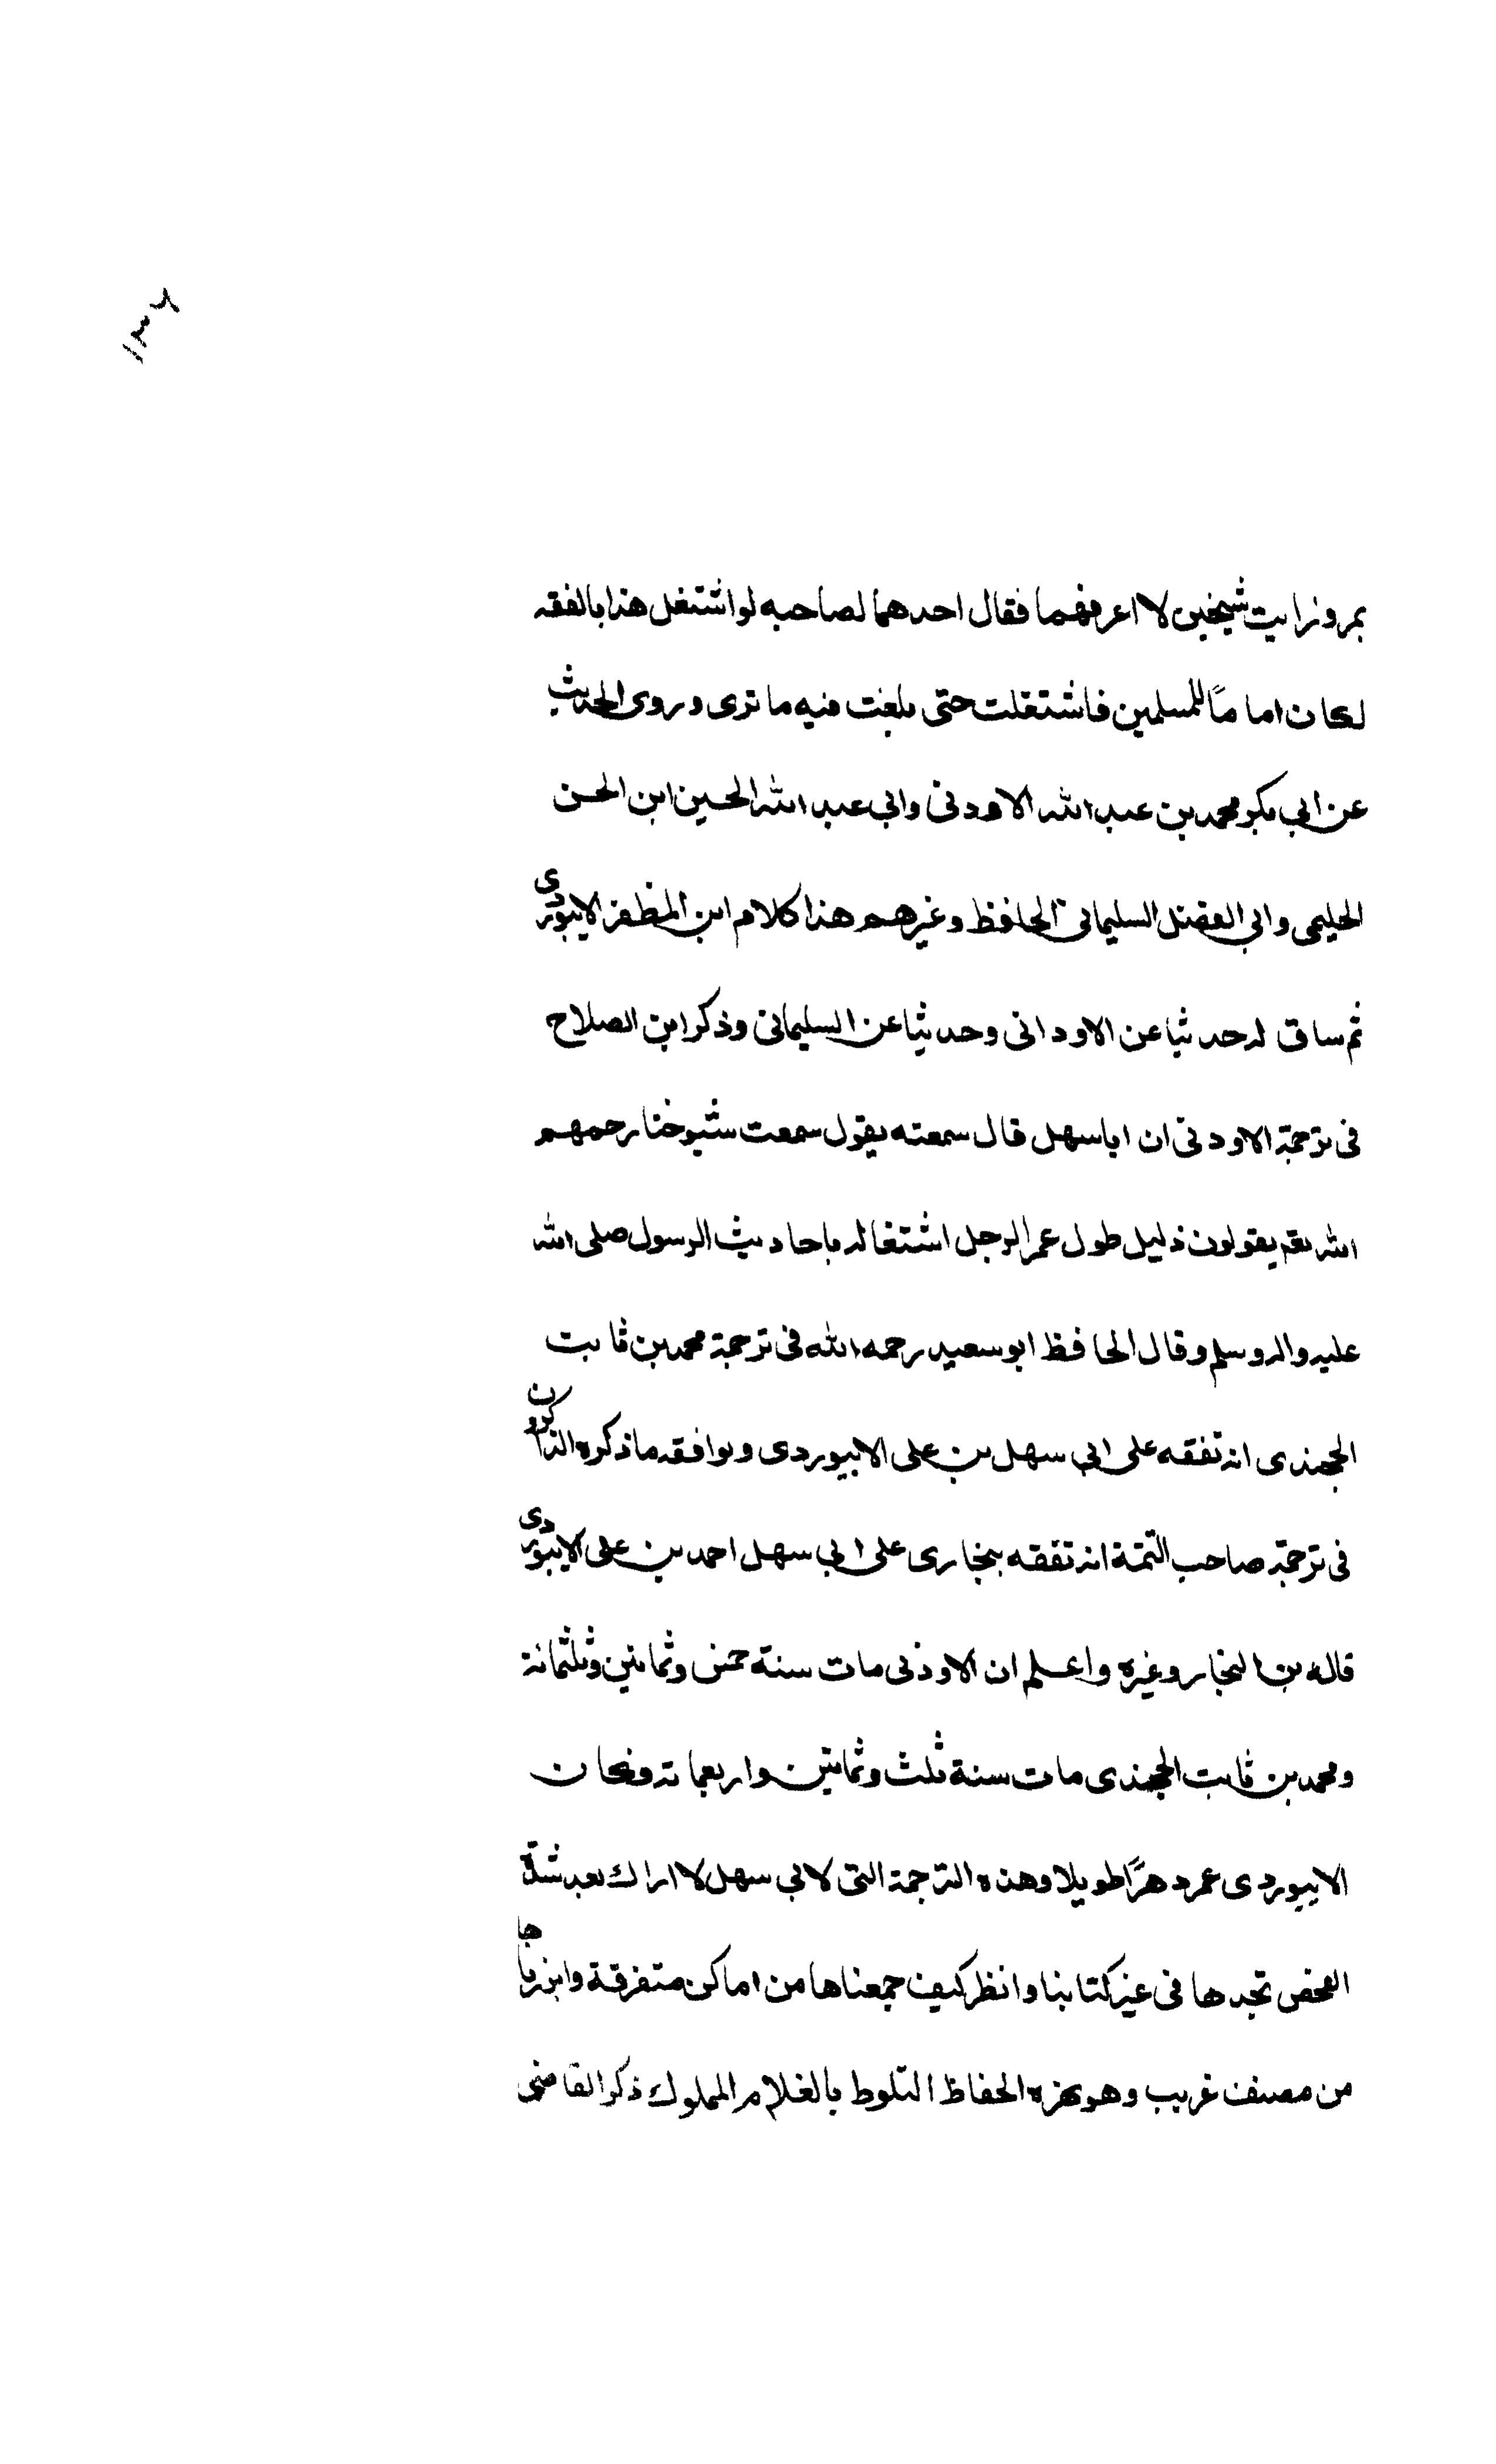 ١٣٨
بمرو فرايت شيخين لا اعرفهما فقال احدهما لصاحبه لو اشتغل هذا بالفقه
لكان اماماً للمسلمين فاشتغلت حتى بلغت فيه ما ترى وروى الحديث
عن ابي بكر محمد بن عبد الله الاودنى وابي عبد الله الحسين ابن الحسن
الحليمى وابي الفضل السليمانى الحافظ وغيرهم هذا كلام ابن المظفر الابيوردى
ثم ساق له حديثا عن الاودانى وحديثا عن السليمانى وذكر ابن الصلاح
فى ترجمة الاودنى ان اباسهل قال سمعته يقول سمعت شيوخنا رحمهم
الله تعم يقولون دليل طول عمر الرجل اشتغاله باحاديث الرسول صلى الله
عليه واله وسلم وقال الحافظ ابو سعيد رحمه الله فى ترجمة محمد بن ثابت
الخجندى انه تفقه على ابي سهل بن على الابيوردى ويوافقه ما ذكره الذاكرون
فى ترجمة صاحب التتمة انه تفقه ببخارى على ابي سهل احمد بن على الابيوردى
قاله بن النجار وغيره واعلم ان الاودنى مات سنة خمس وثمانين وثلثمائة
ومحمد بن ثابت الخجندى مات سنة ثلث وثمانين واربعمائه وفكان
الابيوردى عمر دهرًا طويلا وهذه الترجمة التى لابي سهل لا اراك بعد شدّة
الفحص تجدها فى غير كتابنا وانظر كيف جمعناها من اماكن متفرقة
من مصنف غريب وهو بهزه الحفاظ التلوط بالغلام المملوك ذكر القاضى